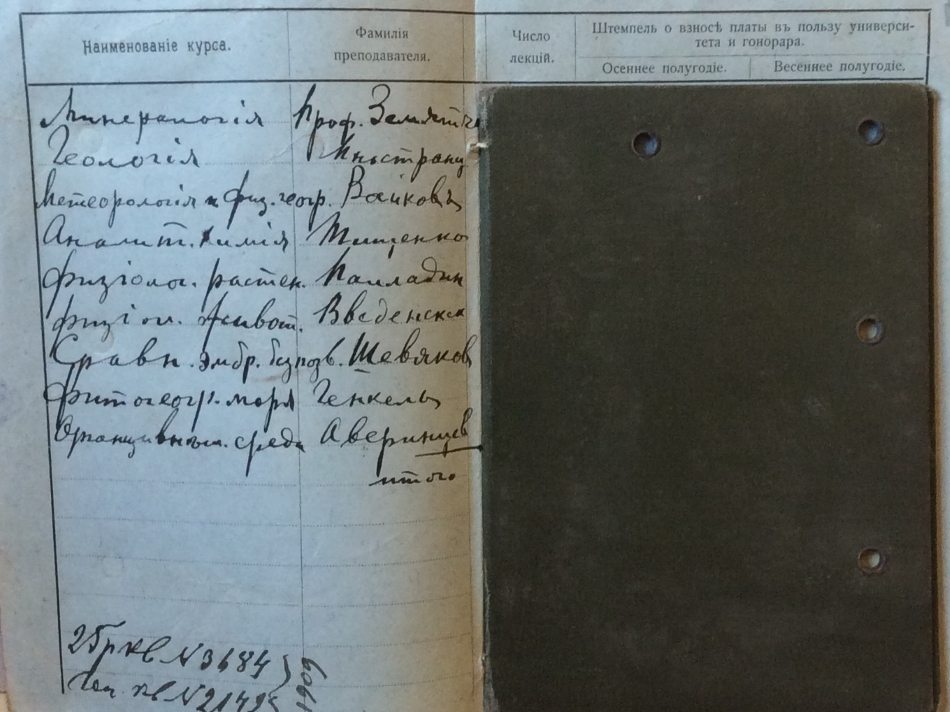 Наименованіе курса.
Фамилія преподавателя.
Число лекцій.
Штемпель о взносѣ платы въ пользу универси-
тета и гонорара.
Осеннее полугодіе.
Весеннее полугодіе.
Минералогія Проф. Земятче
Геологія Иностранц
Метеорологія и физ. геогр. Воейковъ
Аналит. химія Тищенко
Физіолог. растен. Палладин
Физіол. живот. Введенск
Сравн. эмбр. безпозв. Шевяков
Фитогеогр. моря Генкель
Органи. внѣшн. среда Аверинцев
итого
25 р кв N 3684
кв N 2149
1909